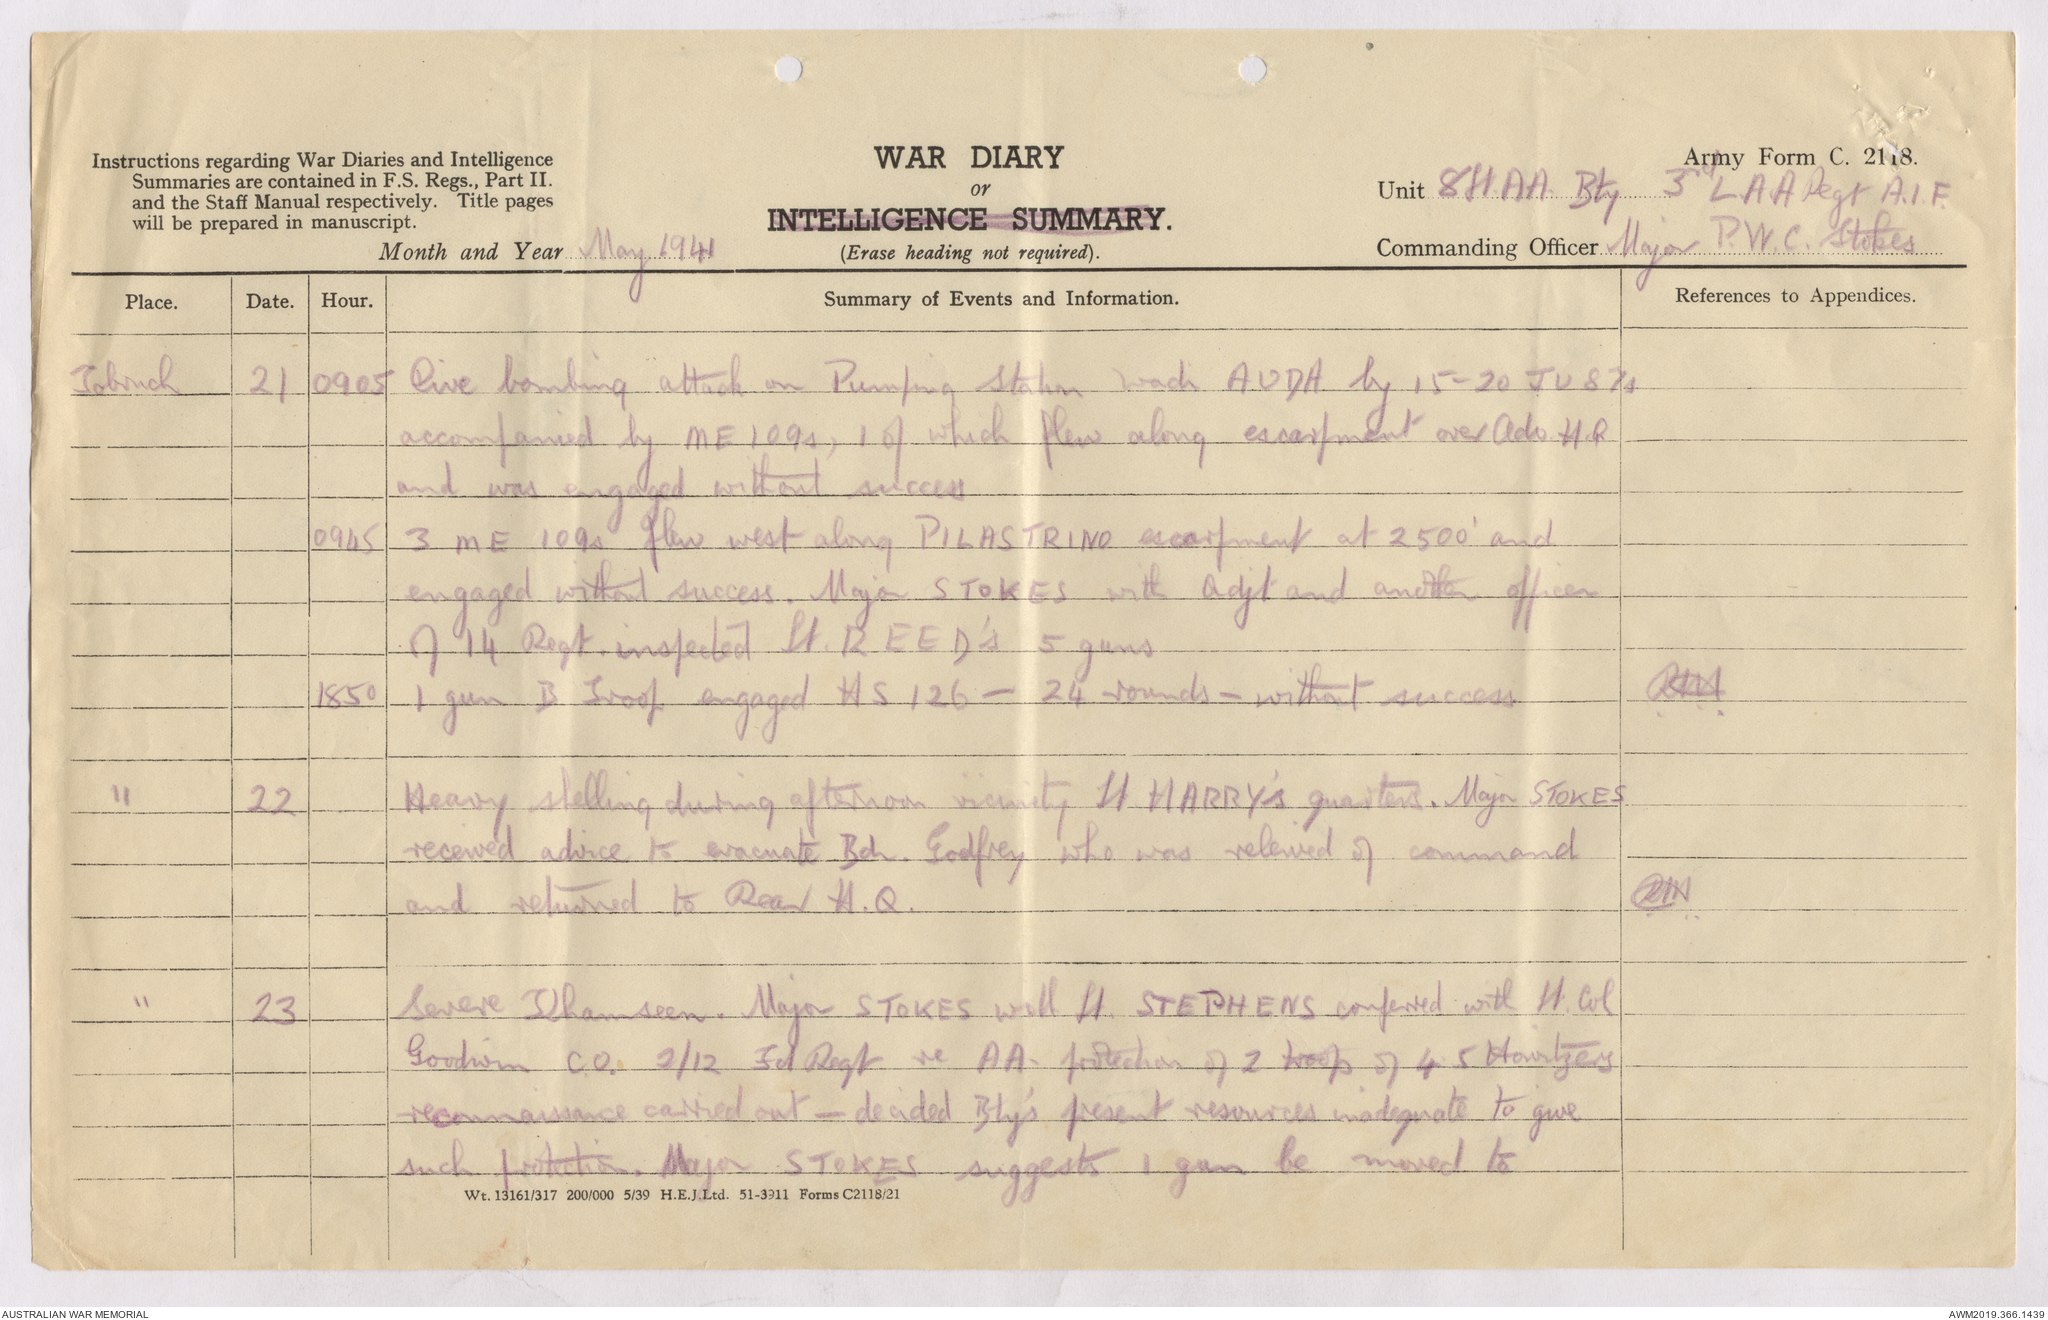 Instructions regarding War Diaries and Intelligence
Summaries are contained in F.S. Regs., Part II.
and the Staff Manual respectively. Title pages
will be prepared in manuscript.
Month and Year May 1941
WAR DIARY
or
INTELLIGENCE SUMMARY.
(Erase heading not required).
Army Form C. 2118.
Unit 8th AA Bty 3rd L A A Regt A.I.F.
Commanding Officer Major P.W.C. Stokes
Place. Date. Hour. Summary of Events and Information. References to Appendices.
Tobruch 21 0905 Dive bombing attack on Pumping Station wadi AUDA by 15-20 JU 87s
accompanied by ME 109s, 1 of which flew along escarpment over Adv. H.Q
and was engaged without success
0945 3 ME 109s flew west along PILASTRINO escarpment at 2500' and
engaged without success. Major STOKES with Adjt and another officer
of 14 Regt. inspected Lt. REED's 5 guns
1850 1 gun B Troop engaged HS 126 — 24 rounds — without success
" 22 Heavy shelling during afternoon vicinity Lt HARRY's quarters. Major STOKES
received advice to evacuate Bdr. Godfrey who was releived of command
and returned to Rear H.Q.
" 23 Severe Khamseen. Major STOKES with Lt. STEPHENS conferred with Lt. Col
Goodwin C.O. 2/12 Fd Regt re AA protection of 2 troop of 4.5 Howitzers
reconnaissance carried out — decided Bty's present resources inadequate to give
such protection. Major STOKES suggests 1 gun be moved to
Wt. 13161/317 200/000 5/39 H.E.J.Ltd. 51-3911 Forms C2118/21
AUSTRALIAN WAR MEMORIAL
AWM2019.366.1439